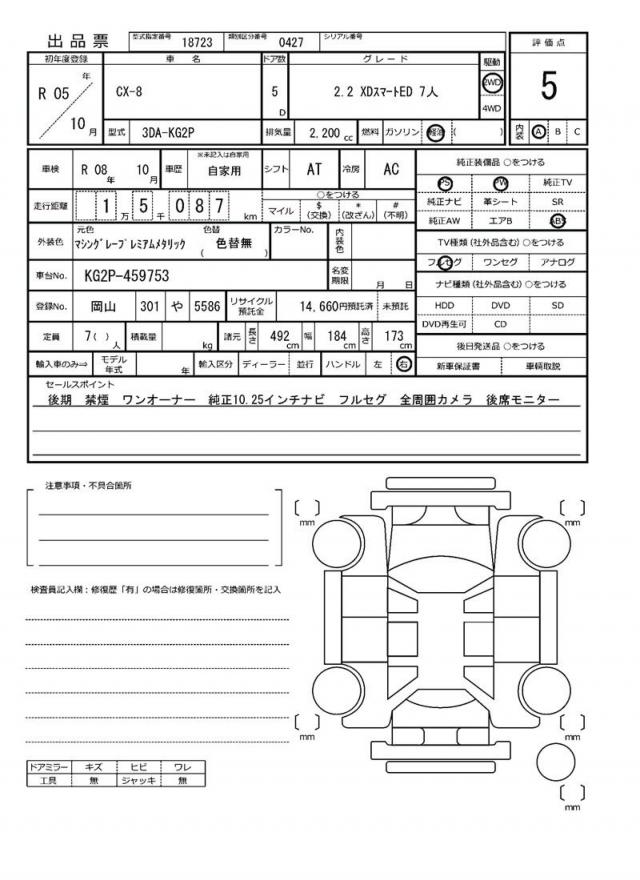 出品票 型式指定番号 18723 類別区分番号 0427 シリアル番号
評価点
初年度登録 車名 ドア数 グレード 駆動
R 05 年 10 月 CX-8 5 D 2.2 XDスマートED 7人 2WD 4WD
5
型式 3DA-KG2P 排気量 2,200 cc 燃料 ガソリン 軽油 ( )
内装 A B C
車検 R 08 年 10 月 車歴 ※未記入は自家用 自家用 シフト AT 冷房 AC
純正装備品 ○をつける
PS PW 純正TV
走行距離 1 万 5 千 0 8 7 km ○をつける
マイル $ (交換) * (改ざん) # (不明)
純正ナビ 革シート SR
純正AW エアB ABS
外装色 元色 マシングレープレミアムメタリック 色替 ( 色替無 ) カラーNo. 内装色
TV種類(社外品含む)○をつける
フルセグ ワンセグ アナログ
車台No. KG2P-459753 名変期限 月 日
ナビ種類(社外品含む)○をつける
登録No. 岡山 301 や 5586 リサイクル預託金 14,660円預託済 未預託
HDD DVD SD
DVD再生可 CD
定員 7( ) 人 積載量 kg 諸元 長さ 492 cm 幅 184 cm 高さ 173 cm
後日発送品 ○をつける
輸入車のみ⇒ モデル年式 年 輸入区分 ディーラー 並行 ハンドル 左 右
新車保証書 車輌取説
セールスポイント
後期 禁煙 ワンオーナー 純正10.25インチナビ フルセグ 全周囲カメラ 後席モニター
注意事項・不具合箇所
mm mm
検査員記入欄:修復歴「有」の場合は修復箇所・交換箇所を記入
mm mm
ドアミラー キズ ヒビ ワレ
工具 無 ジャッキ 無
mm